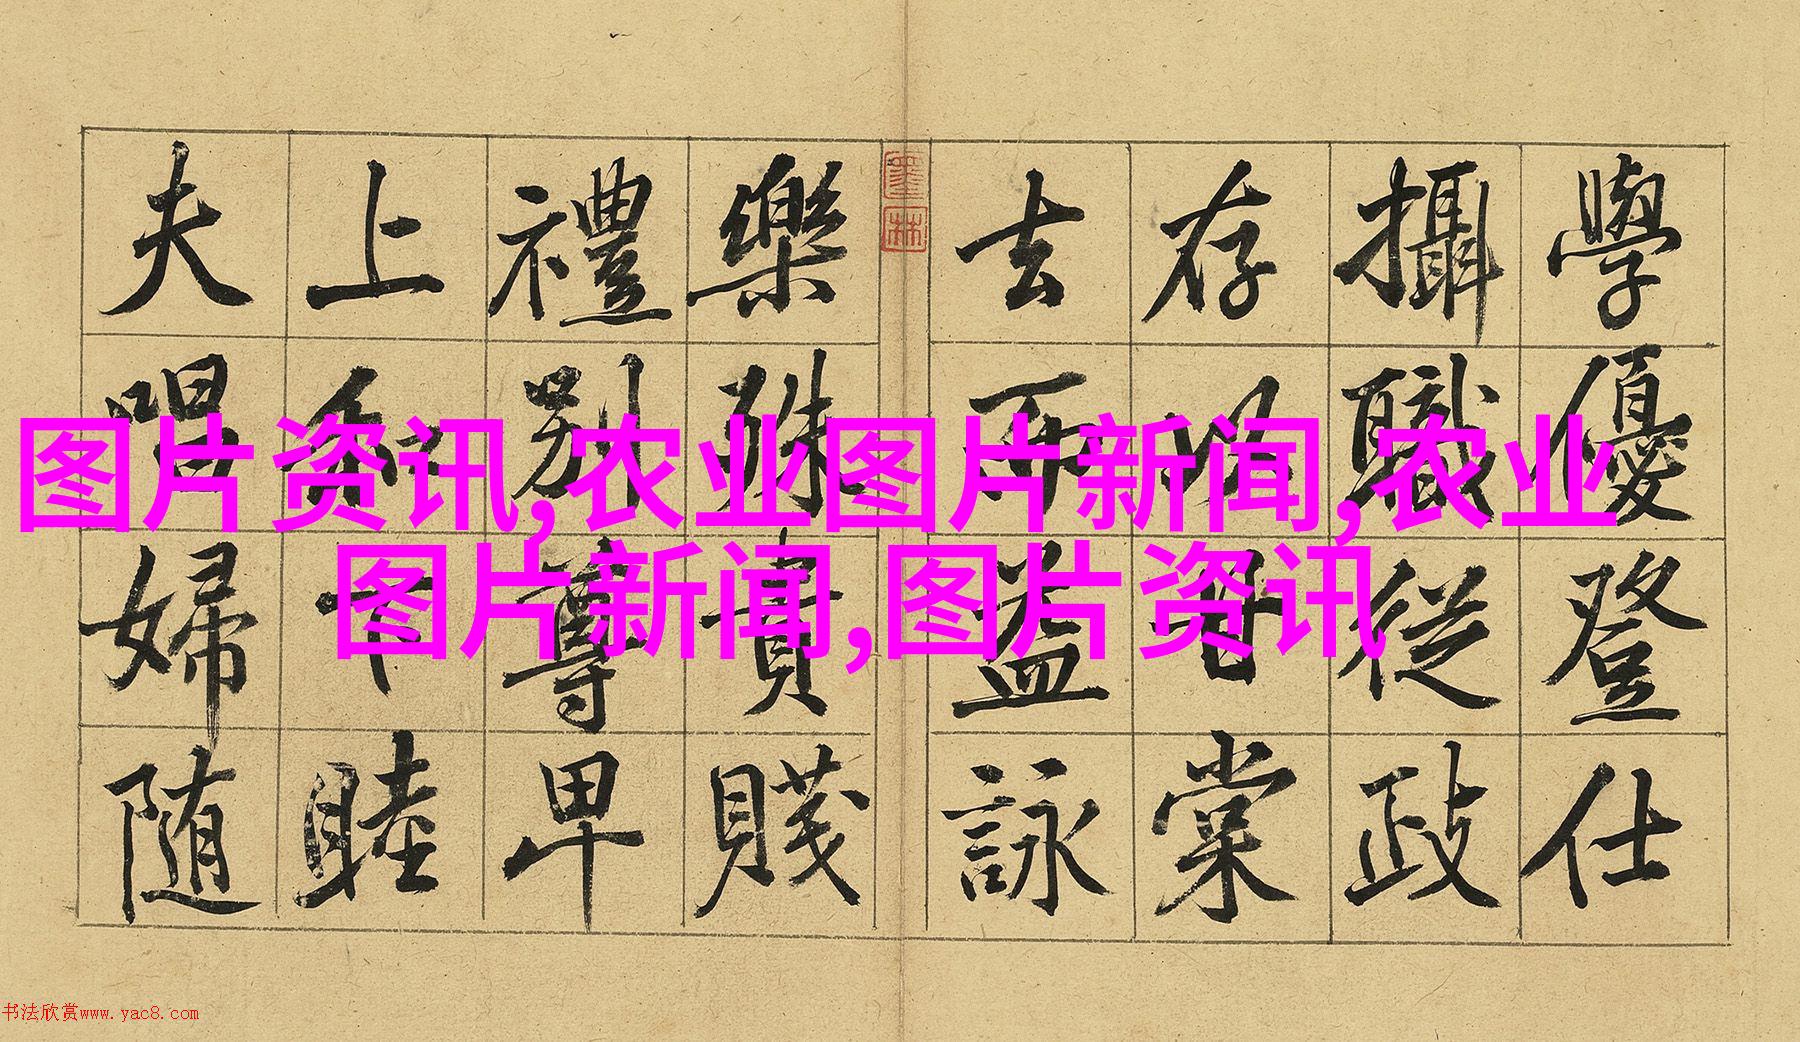 學優登仕
攝職從政
存以甘棠
去而益詠
墨林
樂殊貴賤
禮別尊卑
上和下睦
夫唱婦随
图片资讯,农业图片新闻,农业
图片新闻,图片资讯
书法欣赏www.yac8.com